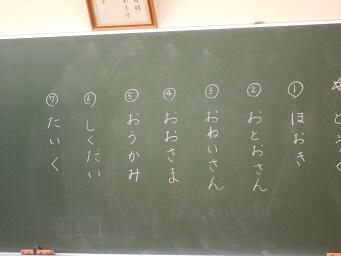 ①ほおき
②おとおさん
③おねいさん
④おおさま
⑤おうかみ
⑥しくだい
⑦たいく